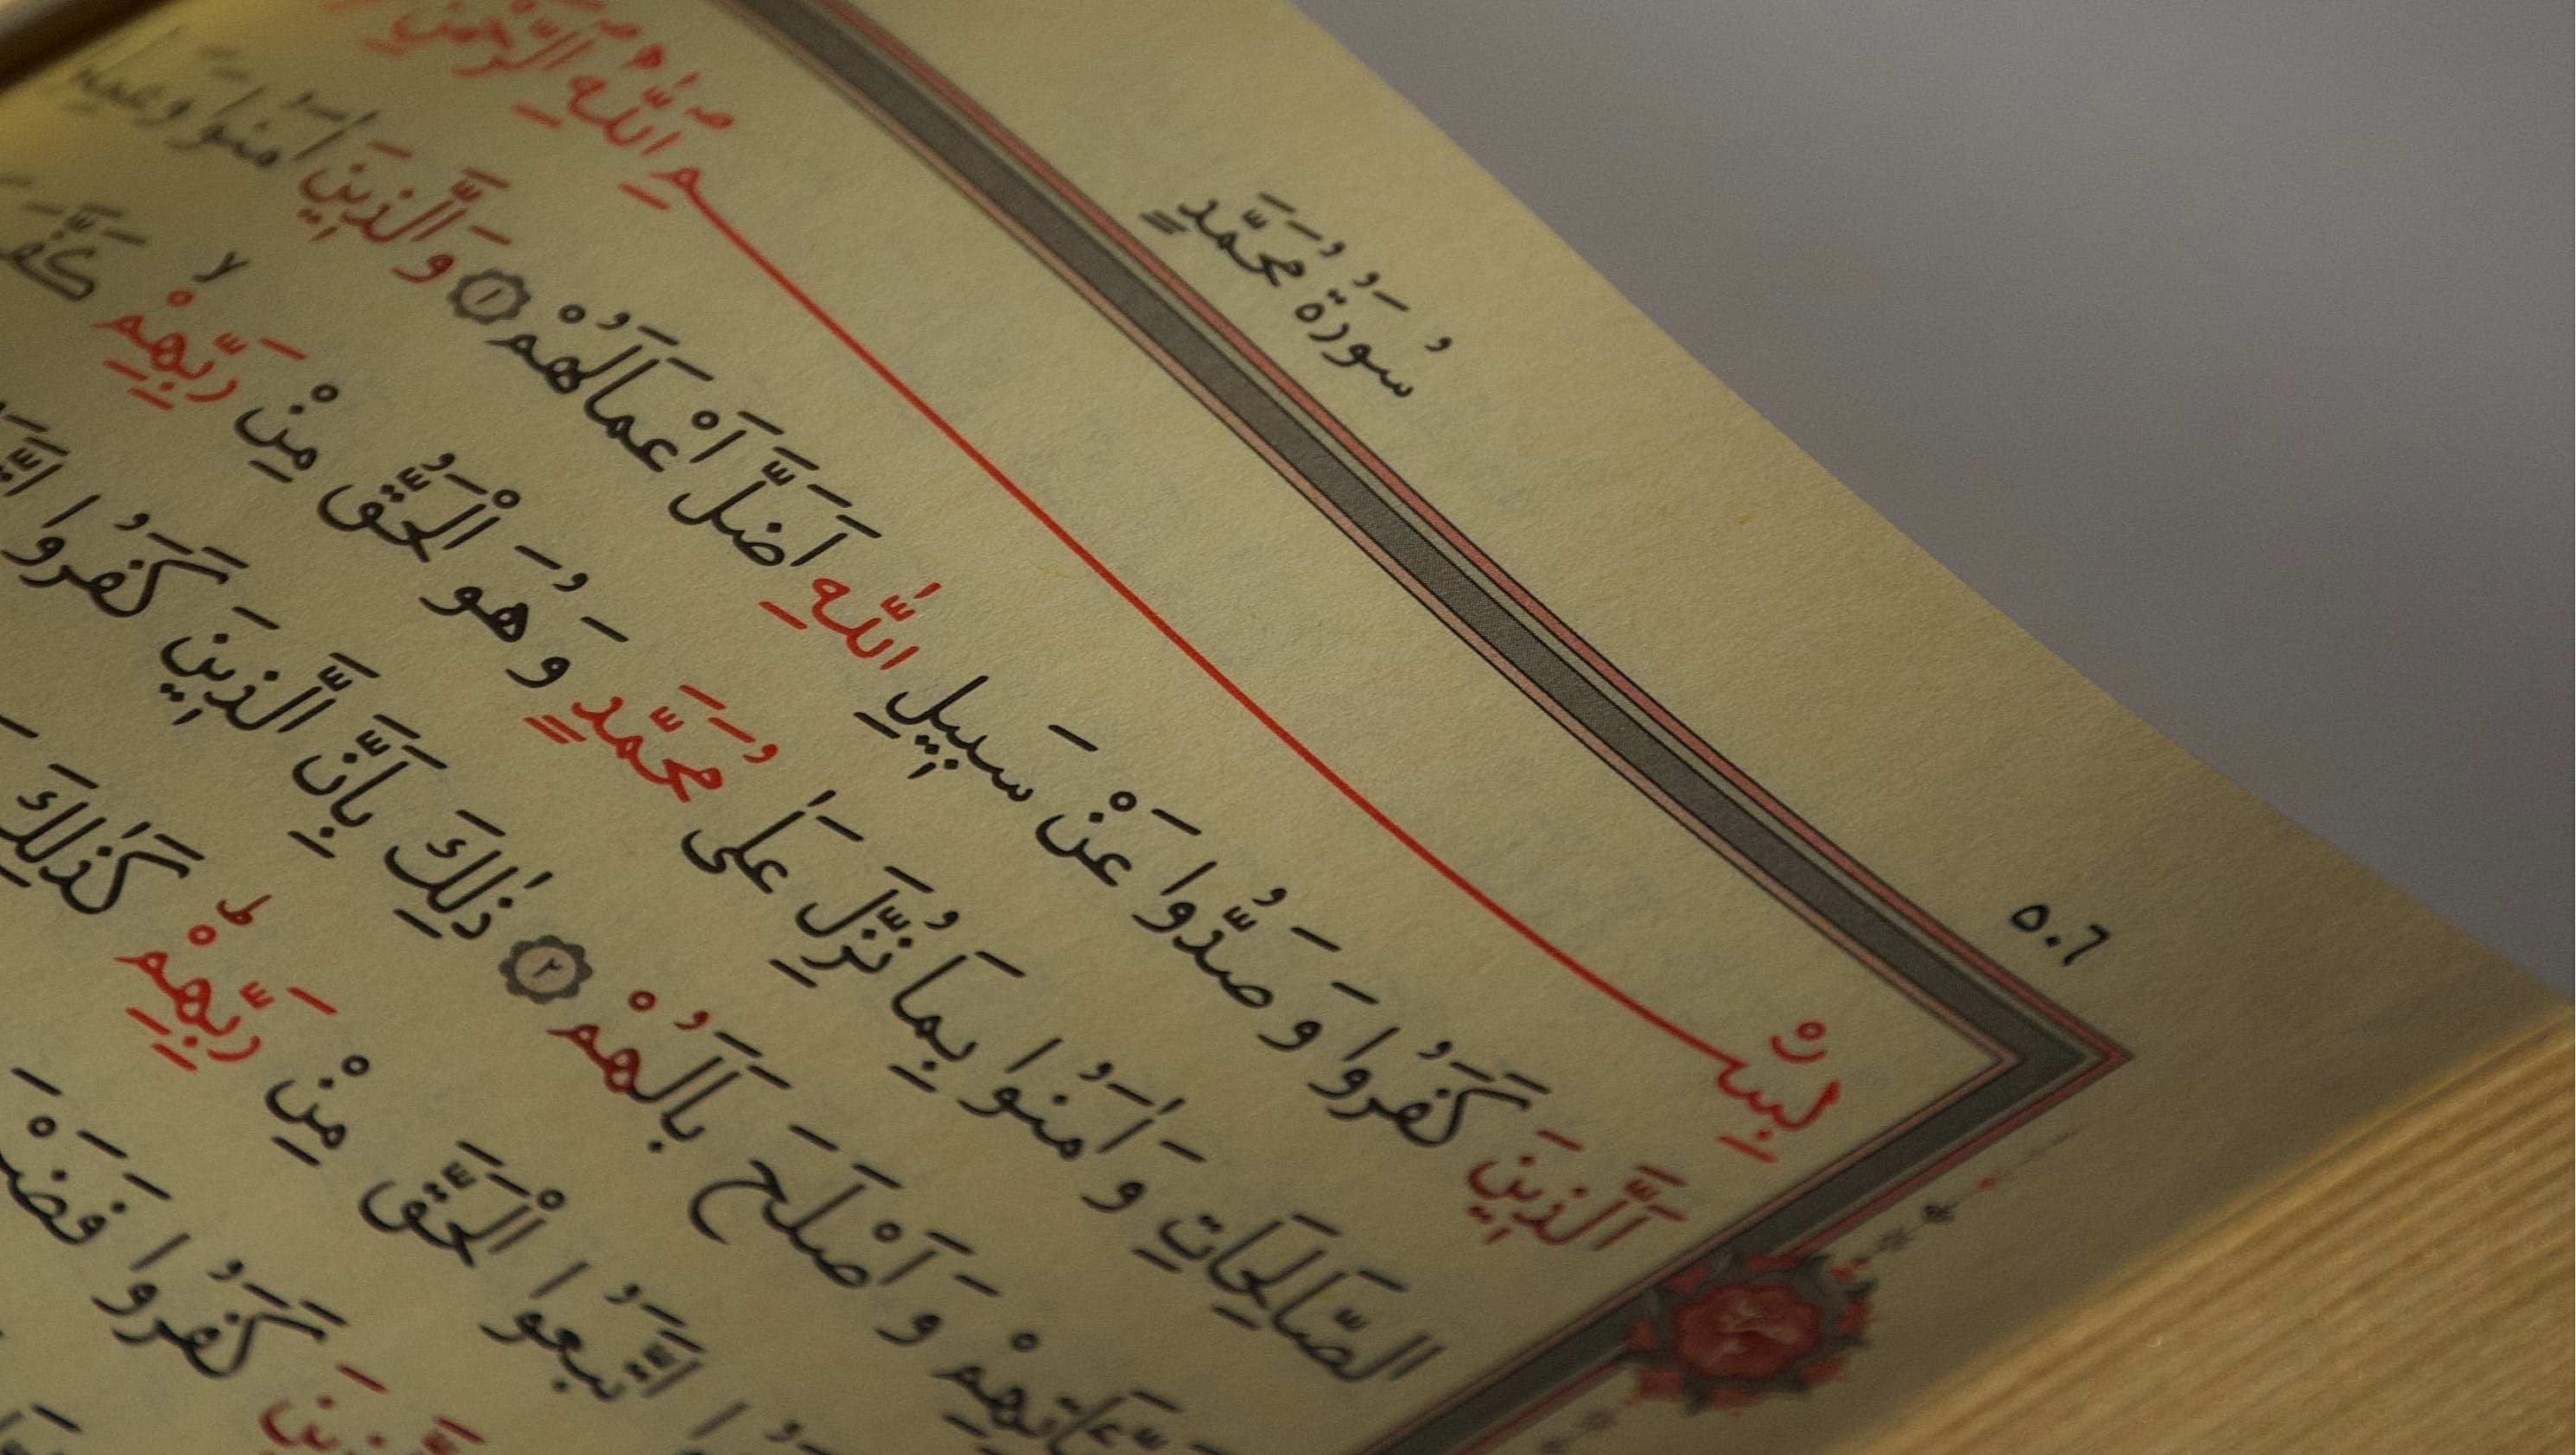 سُورَةُ مُحَمَّدٍ
٥٠٦
بِسْمِ اللّٰهِ الرَّحْمٰنِ
اَلَّذِينَ كَفَرُوا وَصَدُّوا عَنْ سَبِيلِ اللّٰهِ اَضَلَّ اَعْمَالَهُمْ ١ وَالَّذِينَ اٰمَنُوا وَعَمِلُوا
الصَّالِحَاتِ وَاٰمَنُوا بِمَا نُزِّلَ عَلٰى مُحَمَّدٍ وَهُوَ الْحَقُّ مِنْ رَبِّهِمْۙ كَفَّرَ
وَاَصْلَحَ بَالَهُمْ ٢ ذٰلِكَ بِاَنَّ الَّذِينَ كَفَرُوا
اتَّبَعُوا الْحَقَّ مِنْ رَبِّهِمْۜ كَذٰلِكَ
كَفَرُوا